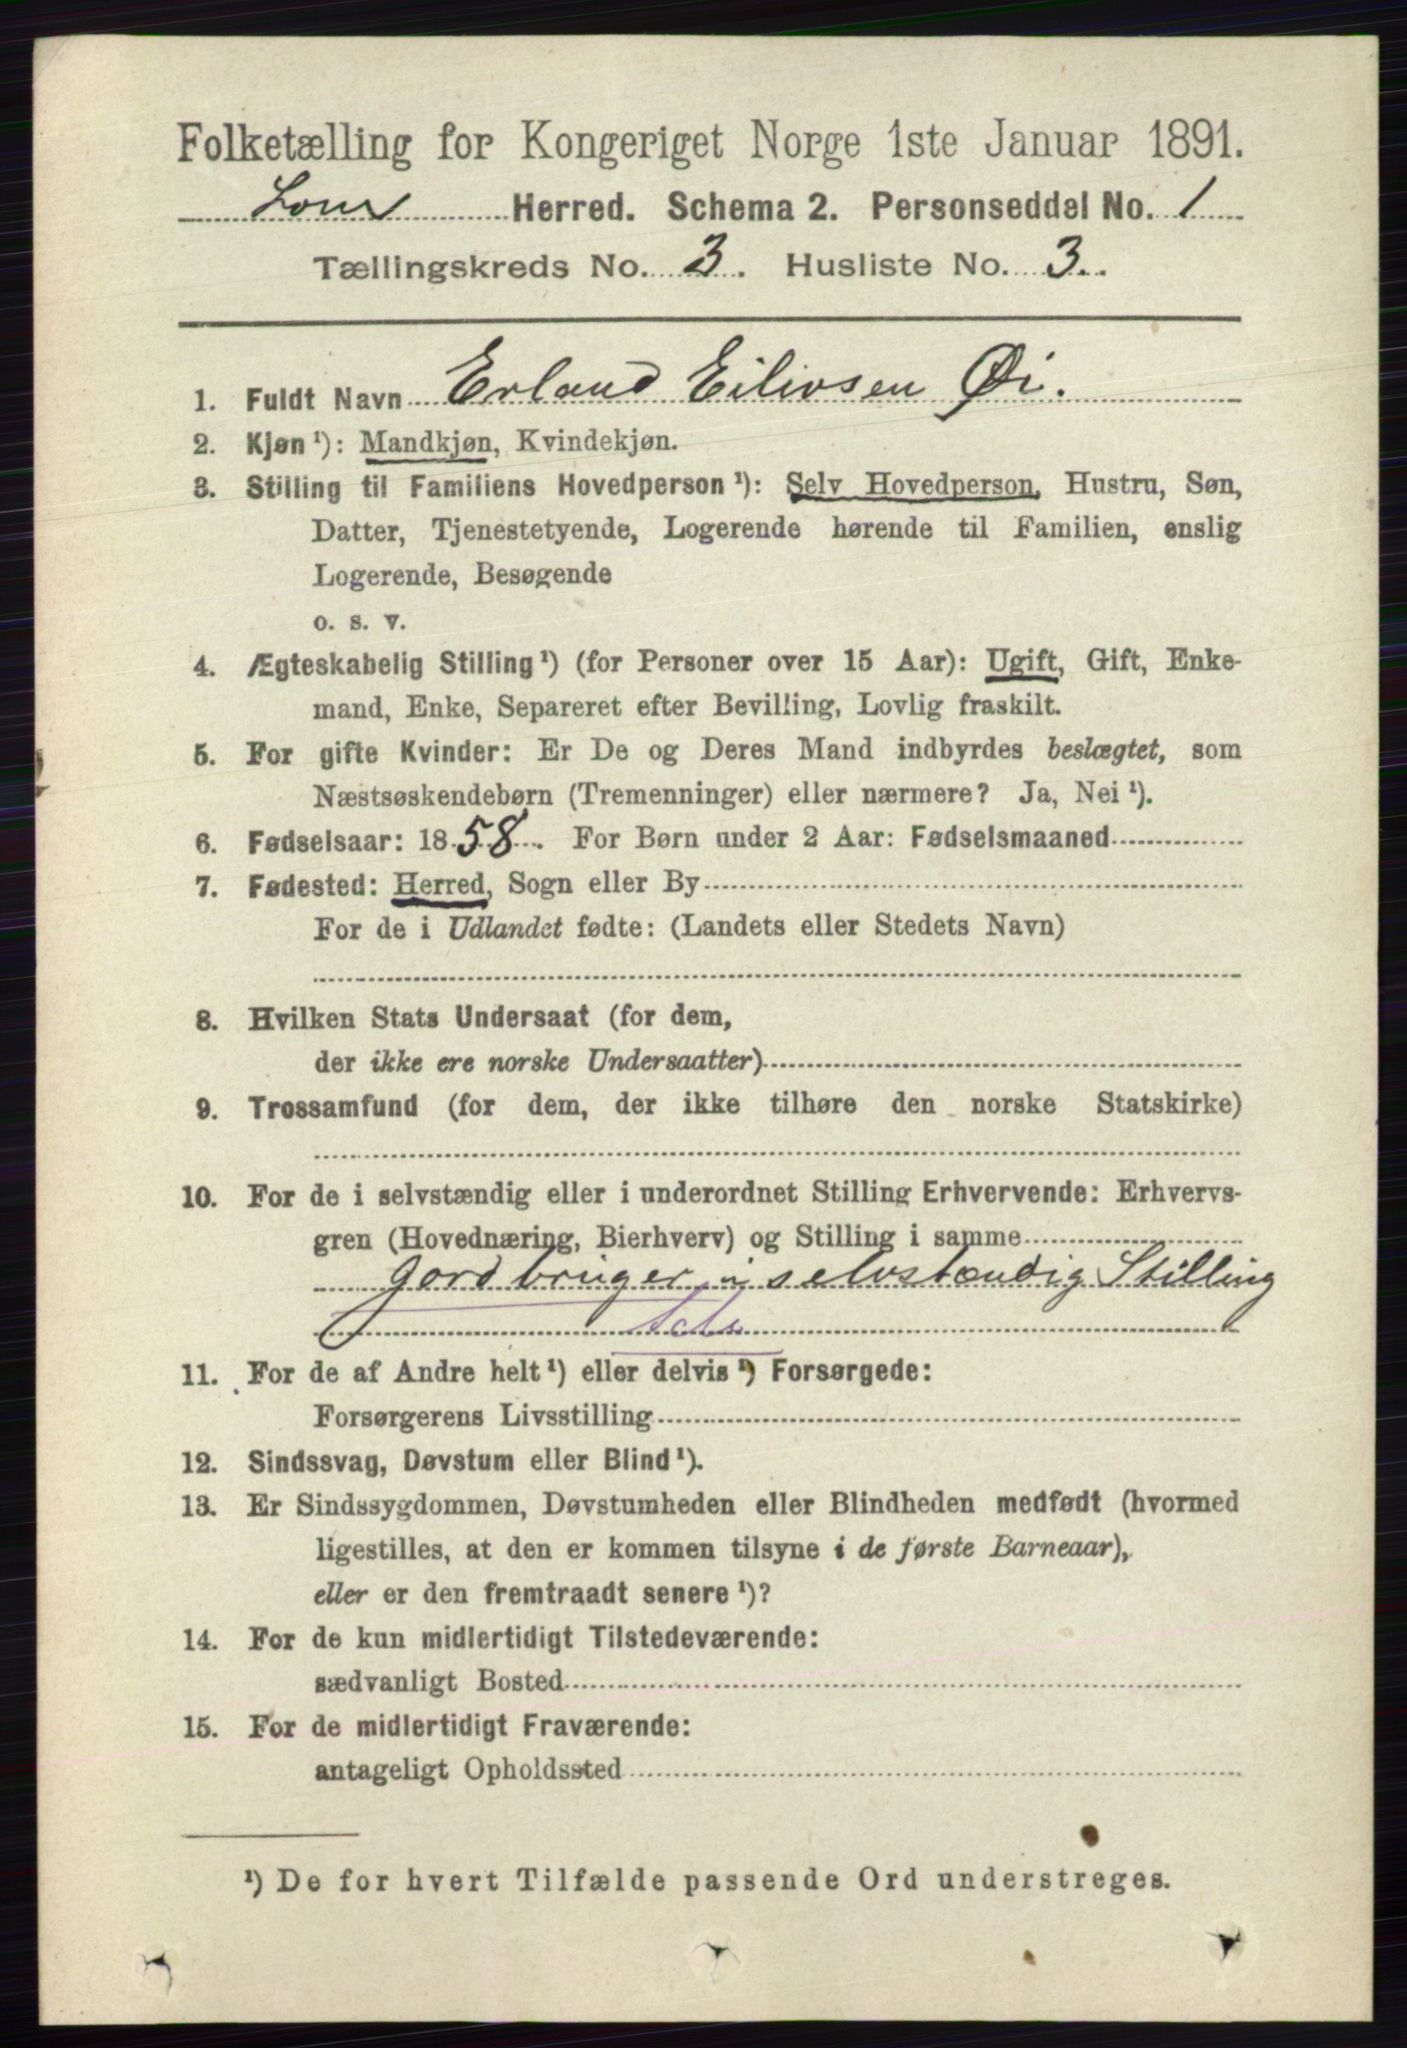 Folketælling for Kongeriget Norge 1ste Januar 1891.
Lom Herred. Schema 2. Personseddel No. 1
Tællingskreds No. 3. Husliste No. 3.
1. Fuldt Navn Erland Eilivsen Øi.
2. Kjøn ¹): Mandkjøn, Kvindekjøn.
3. Stilling til Familiens Hovedperson ¹): Selv Hovedperson, Hustru, Søn,
Datter, Tjenestetyende, Logerende hørende til Familien, enslig
Logerende, Besøgende
o. s. v.
4. Ægteskabelig Stilling ¹) (for Personer over 15 Aar): Ugift, Gift, Enke-
mand, Enke, Separeret efter Bevilling, Lovlig fraskilt.
5. For gifte Kvinder: Er De og Deres Mand indbyrdes beslægtet, som
Næstsøskendebørn (Tremenninger) eller nærmere? Ja, Nei ¹).
6. Fødselsaar: 1858. For Børn under 2 Aar: Fødselsmaaned
7. Fødested: Herred, Sogn eller By
For de i Udlandet fødte: (Landets eller Stedets Navn)
8. Hvilken Stats Undersaat (for dem,
der ikke ere norske Undersaatter)
9. Trossamfund (for dem, der ikke tilhøre den norske Statskirke)
10. For de i selvstændig eller i underordnet Stilling Erhvervende: Erhvervs-
gren (Hovednæring, Bierhverv) og Stilling i samme
Gordbruger i selvstændig Stilling
11. For de af Andre helt ¹) eller delvis ¹) Forsørgede:
Forsørgerens Livsstilling
12. Sindssvag, Døvstum eller Blind ¹).
13. Er Sindssygdommen, Døvstumheden eller Blindheden medfødt (hvormed
ligestilles, at den er kommen tilsyne i de første Barneaar),
eller er den fremtraadt senere ¹)?
14. For de kun midlertidigt Tilstedeværende:
sædvanligt Bosted
15. For de midlertidigt Fraværende:
antageligt Opholdssted
¹) De for hvert Tilfælde passende Ord understreges.